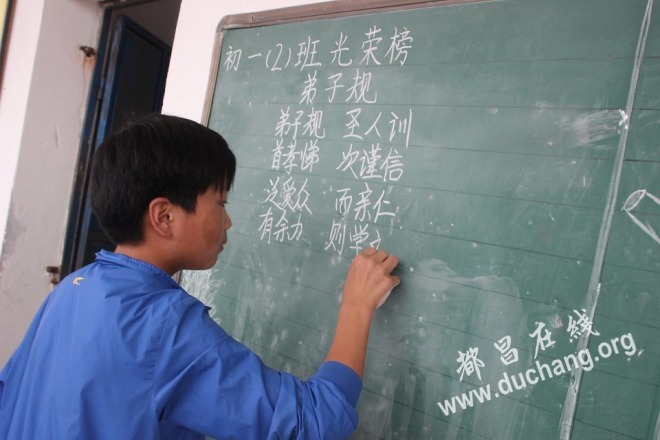 初一(2)班光荣榜
弟子规
弟子规 圣人训
首孝悌 次谨信
泛爱众 而亲仁
有余力 则学
都昌在线
www.duchang.org